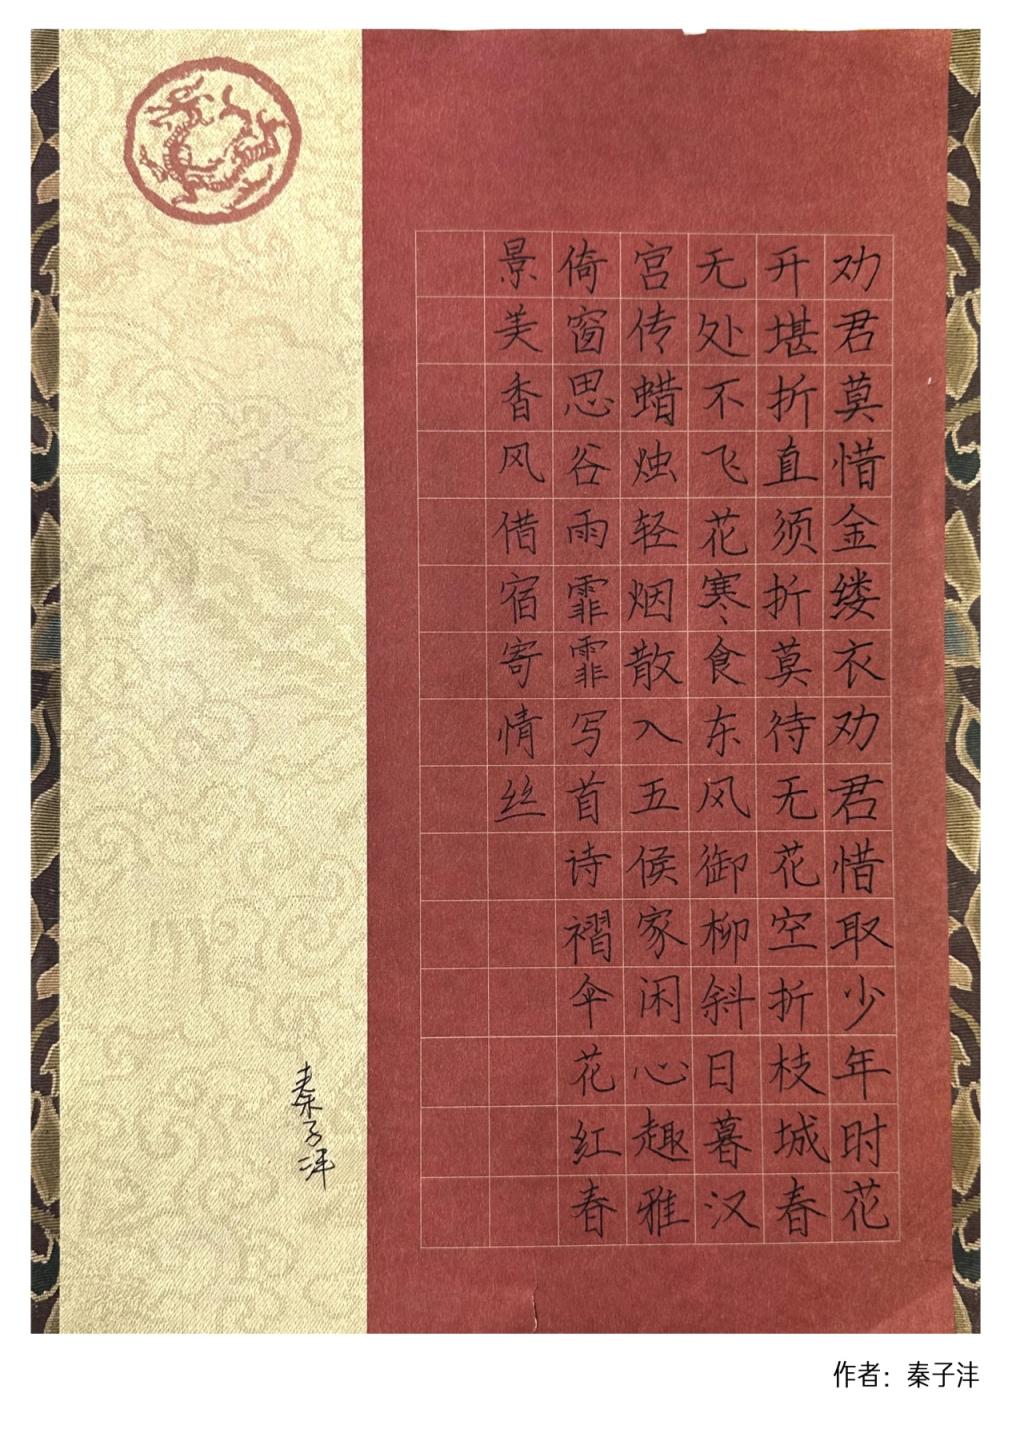 劝君莫惜金缕衣劝君惜取少年时花
开堪折直须折莫待无花空折枝城春
无处不飞花寒食东风御柳斜日暮汉
宫传蜡烛轻烟散入五侯家闲心趣雅
倚窗思谷雨霏霏写首诗褶伞花红春
景美香风借宿寄情丝
秦子沣
作者：秦子沣